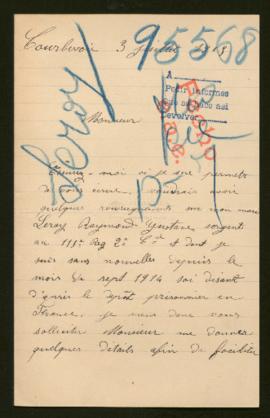 95568
Courbevoie 3 juillet 1915
Leroy
A
Pour informes
Devolver
Monsieur
Excusez-moi si je me permets
de vous écrire, je voudrais avoir
quelques renseignements sur mon mari
Leroy Raymond Gustave sergent
au 111e Reg 2e Cie et dont je
suis sans nouvelles depuis le
mois de sept 1914 soi disant
d'après le depot prisonnier en
France, je viens donc vous
solliciter Monsieur me donner
quelques détails afin de faciliter